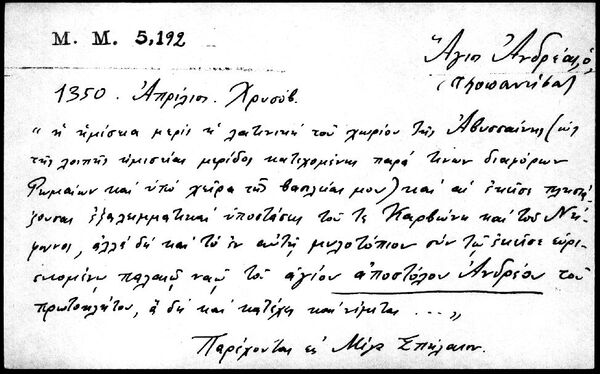 Μ. Μ. 5,192
Ἅγιος Ἀνδρέας, ὁ
1350. Ἀπρίλιος. Χρυσόβ.
" ἡ ἡμίσεια μερὶς ἡ λατινικὴ τοῦ χωρίου τῆς Ἀβυσσαίνης (ὡς
τῆς λοιπῆς ἡμισείας μερίδος κατεχομένης παρά τινων διαφόρων
Ῥωμαίων καὶ ὑπὸ χεῖρα τῆς βασιλείας μου) καὶ αἱ ἐκεῖσε πλησιά-
ζουσαι ἐξαλειμματικαὶ ὑποστάσεις τοῦ τε Καρβώνη καὶ τοῦ
ἀλλὰ δὴ καὶ τὸ ἐν αὐτῇ μυλοτόπιον σὺν τῷ ἐκεῖσε εὑρι-
σκομένῳ παλαιῷ ναῷ τοῦ ἁγίου ἀποστόλου Ἀνδρέου τοῦ
πρωτοκλήτου, ἃ δὴ καὶ κατέχει καὶ νέμεται ... "
Παρέχονται εἰς Μέγα Σπήλαιον.